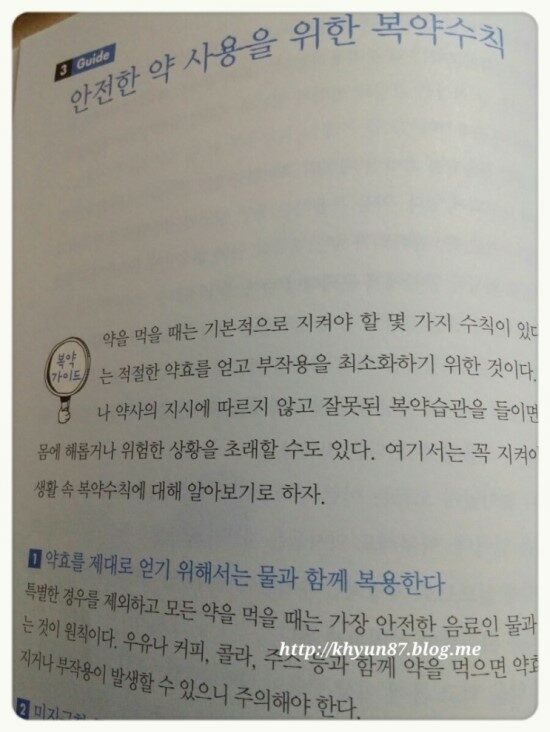 3 Guide
안전한 약 사용을 위한 복약수칙
복약
가이드
약을 먹을 때는 기본적으로 지켜야 할 몇 가지 수칙이 있다
는 적절한 약효를 얻고 부작용을 최소화하기 위한 것이다.
나 약사의 지시에 따르지 않고 잘못된 복약습관을 들이면
몸에 해롭거나 위험한 상황을 초래할 수도 있다. 여기서는 꼭 지켜야
생활 속 복약수칙에 대해 알아보기로 하자.
1 약효를 제대로 얻기 위해서는 물과 함께 복용한다
특별한 경우를 제외하고 모든 약을 먹을 때는 가장 안전한 음료인 물과
는 것이 원칙이다. 우유나 커피, 콜라, 주스 등과 함께 약을 먹으면 약효
지거나 부작용이 발생할 수 있으니 주의해야 한다.
http://khyun87.blog.me
2